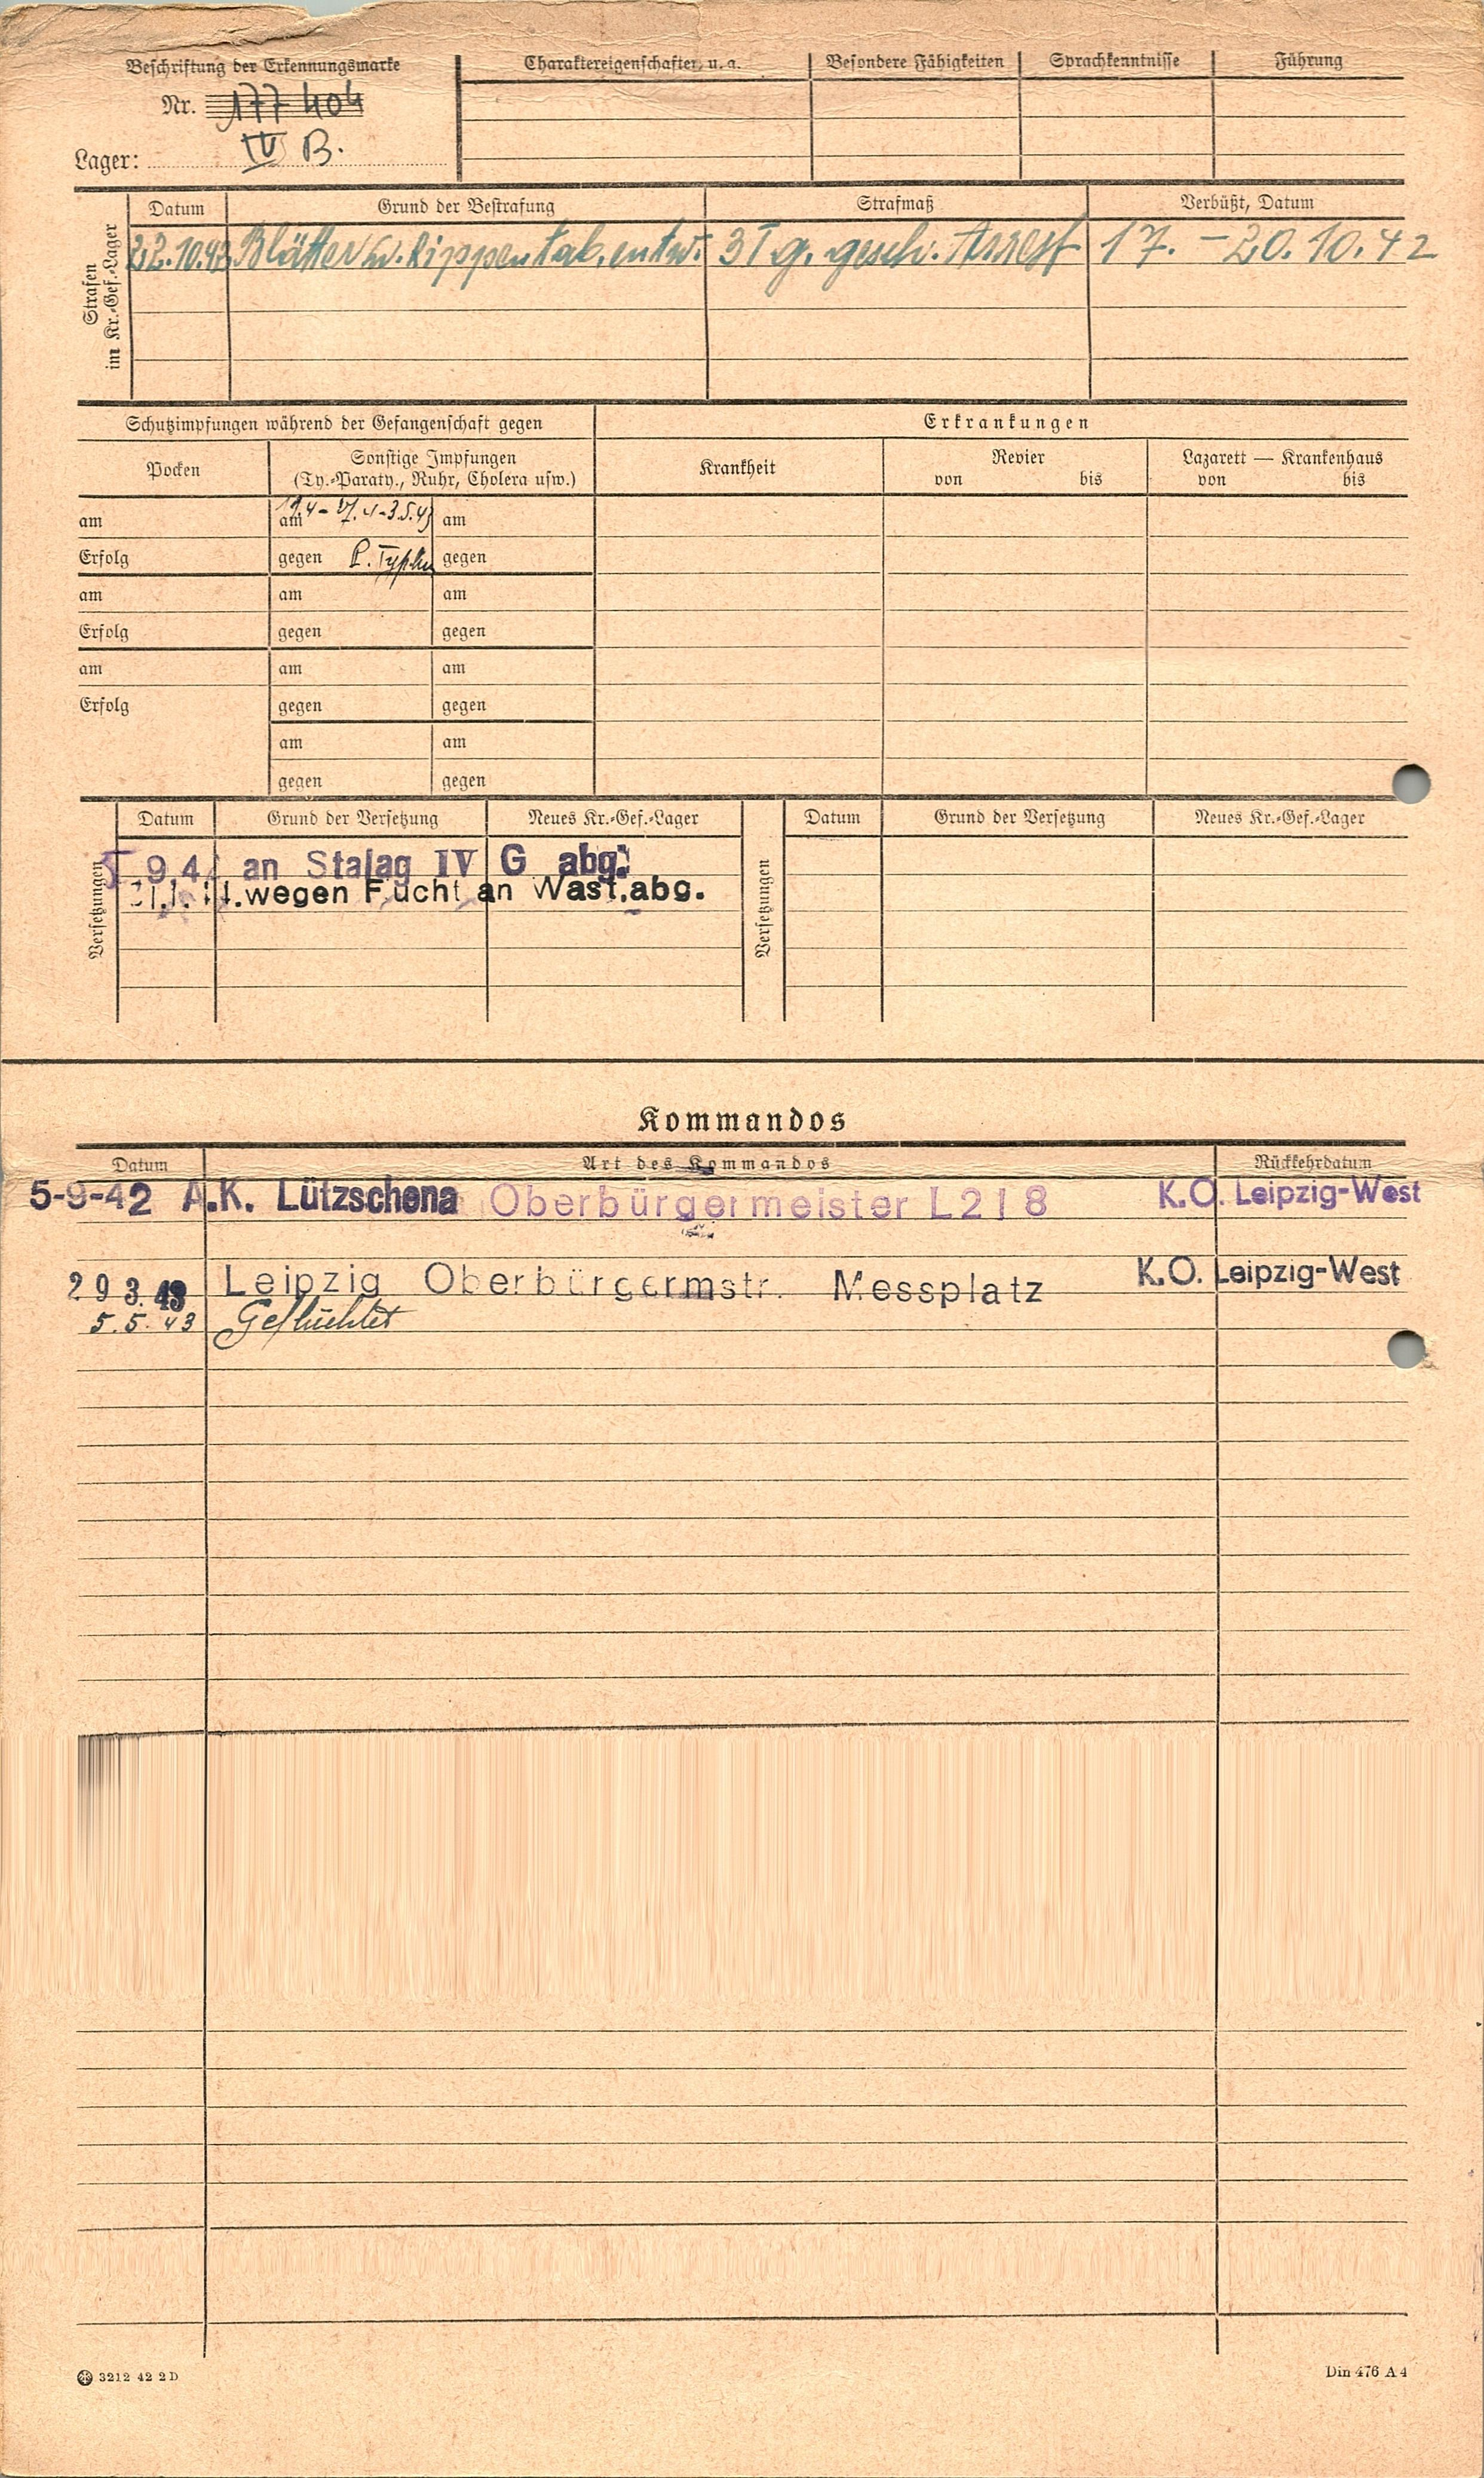 Beschriftung der Erkennungsmarke
Charaktereigenschaften u. a.
Besondere Fähigkeiten
Sprachkenntnisse
Führung
Nr. 177 404
Lager: IV B.
Strafen
im Kr.-Gef.-Lager
Datum
Grund der Bestrafung
Strafmaß
Verbüßt, Datum
22.10.42 Blätter u. Rippentab. entw. 3 Tg. gesch. Arrest 17. - 20.10.42
Schutzimpfungen während der Gefangenschaft gegen
Erkrankungen
Pocken
Sonstige Impfungen
(Ty.-Paraty., Ruhr, Cholera usw.)
Krankheit
Revier
von bis
Lazarett — Krankenhaus
von bis
am am am
Erfolg gegen P. gegen
am am am
Erfolg gegen gegen
am am am
Erfolg gegen gegen
am am
gegen gegen
Versetzungen
Datum
Grund der Versetzung
Neues Kr.-Gef.-Lager
Versetzungen
Datum
Grund der Versetzung
Neues Kr.-Gef.-Lager
an Stalag IV G abg.
wegen Flucht an Wast.abg.
Kommandos
Datum
Art des Kommandos
Rückkehrdatum
5-9-42 A.K. Lützschena Oberbürgermeister L 218 K.O. Leipzig-West
29 3. 43 Leipzig Oberbürgermstr. Messplatz K.O. Leipzig-West
5.5.43 Geflüchtet
3212 42 2 D
Din 476 A 4